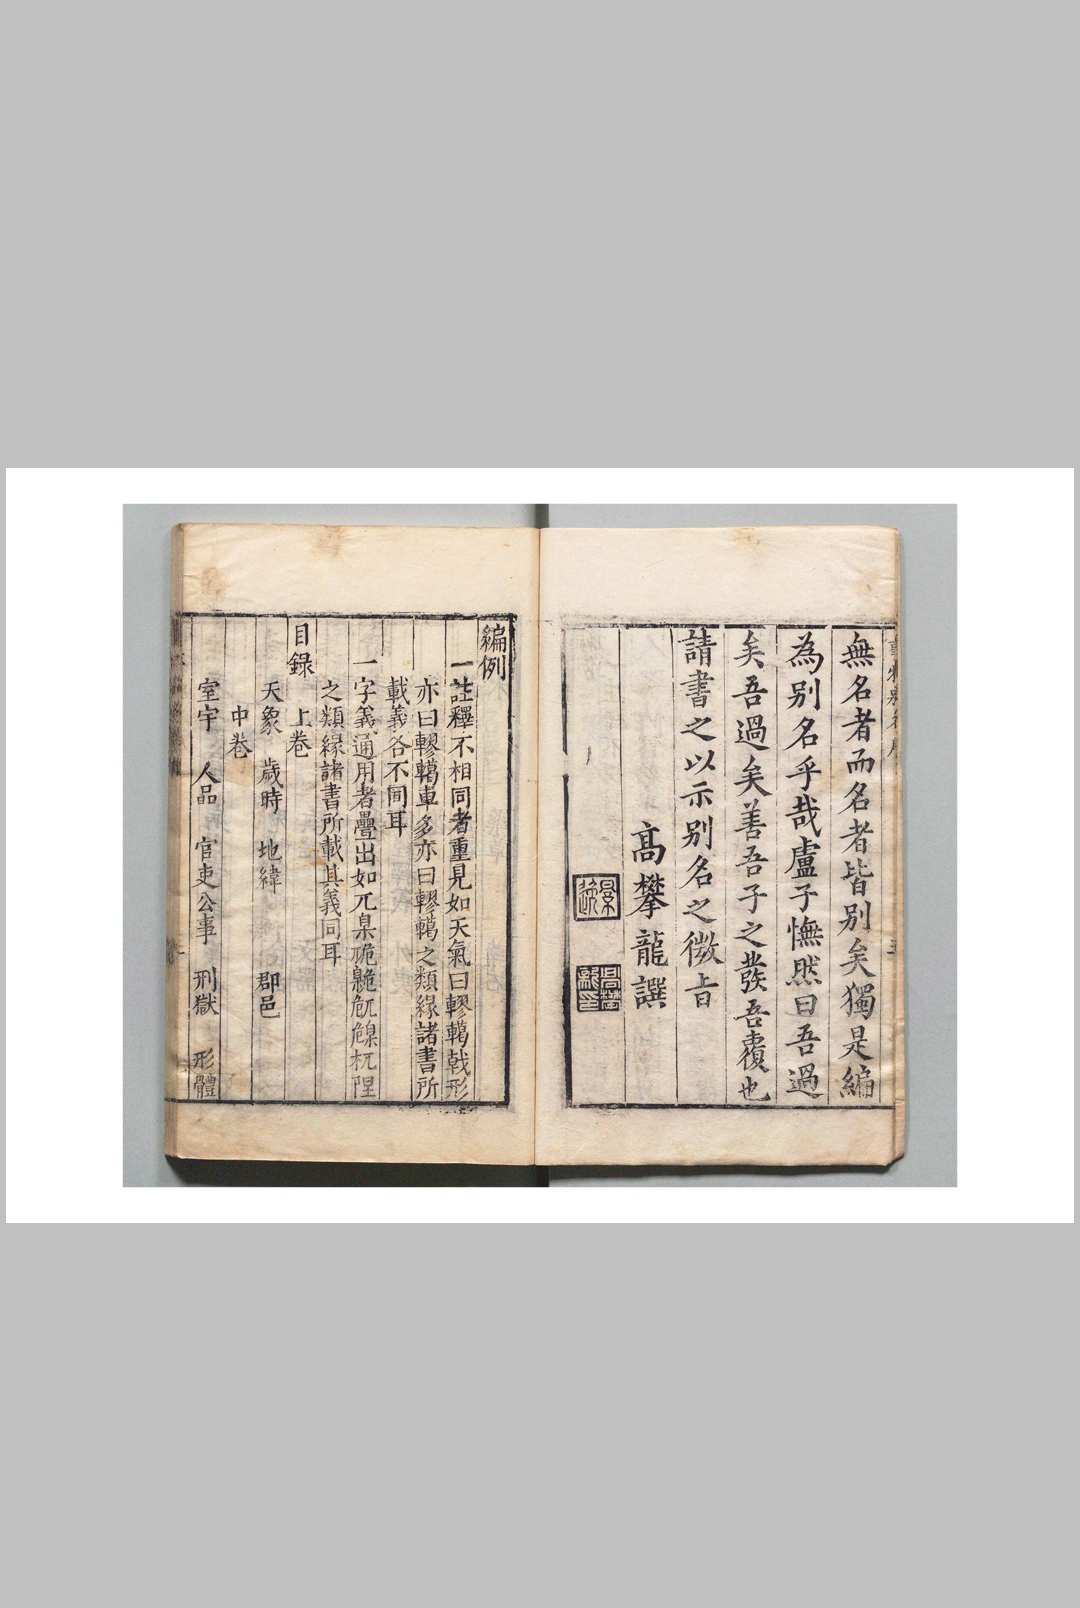 無名者而名者皆别矣獨是編
為别名乎哉盧子憮然曰吾過
矣吾過矣善吾子之發吾覆也
請書之以示别名之微旨
高攀龍譔
景逸
編例
一註釋不相同者重見如天氣曰轇轕戟形
亦曰轇轕車多亦曰轇轕之類緣諸書所
載義各不同耳
一字義通用者疊出如兀臬硊臲卼𡰈杌隉
之類緣諸書所載其義同耳
目錄
上卷
天象 歲時 地緯 郡邑
中卷
室宇 人品 官吏公事 刑獄 形體